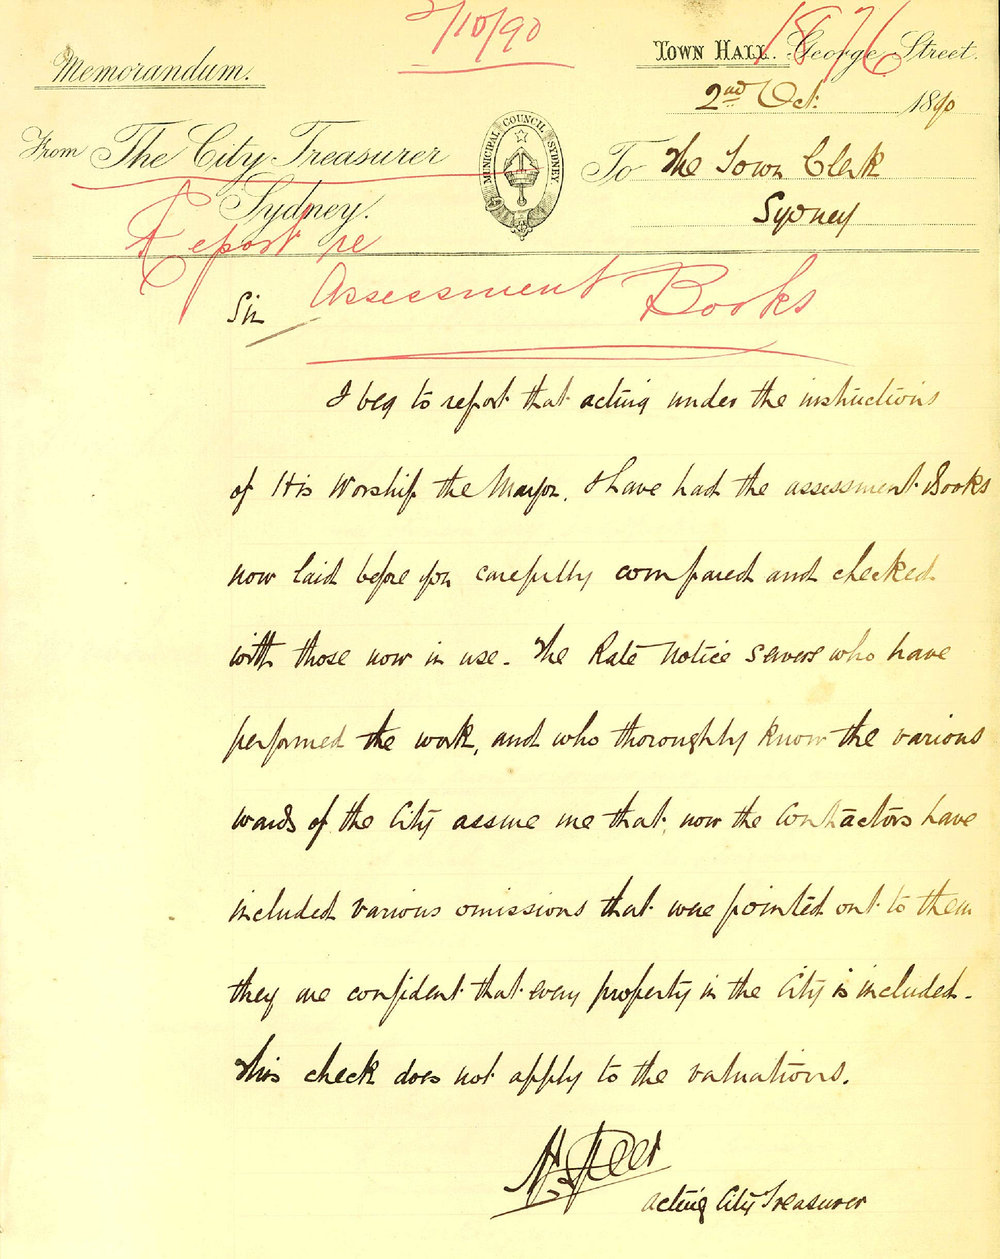 2/10/90
1876
Memorandum.
Town Hall. George Street.
2nd Oct. 1890
From The City Treasurer
Sydney.
MUNICIPAL COUNCIL SYDNEY.
To The Town Clerk
Sydney
Report re
Assessment Books
Sir
I beg to report that acting under the instructions
of His Worship the Mayor, I have had the assessment Books
now laid before you carefully compared and checked
with those now in use. The Rate Notice Servers who have
performed the work, and who thoroughly know the various
wards of the City assure me that, now the contractors have
included various omissions that were pointed out to them
they are confident that every property in the City is included.
This check does not apply to the valuations.
acting City Treasurer